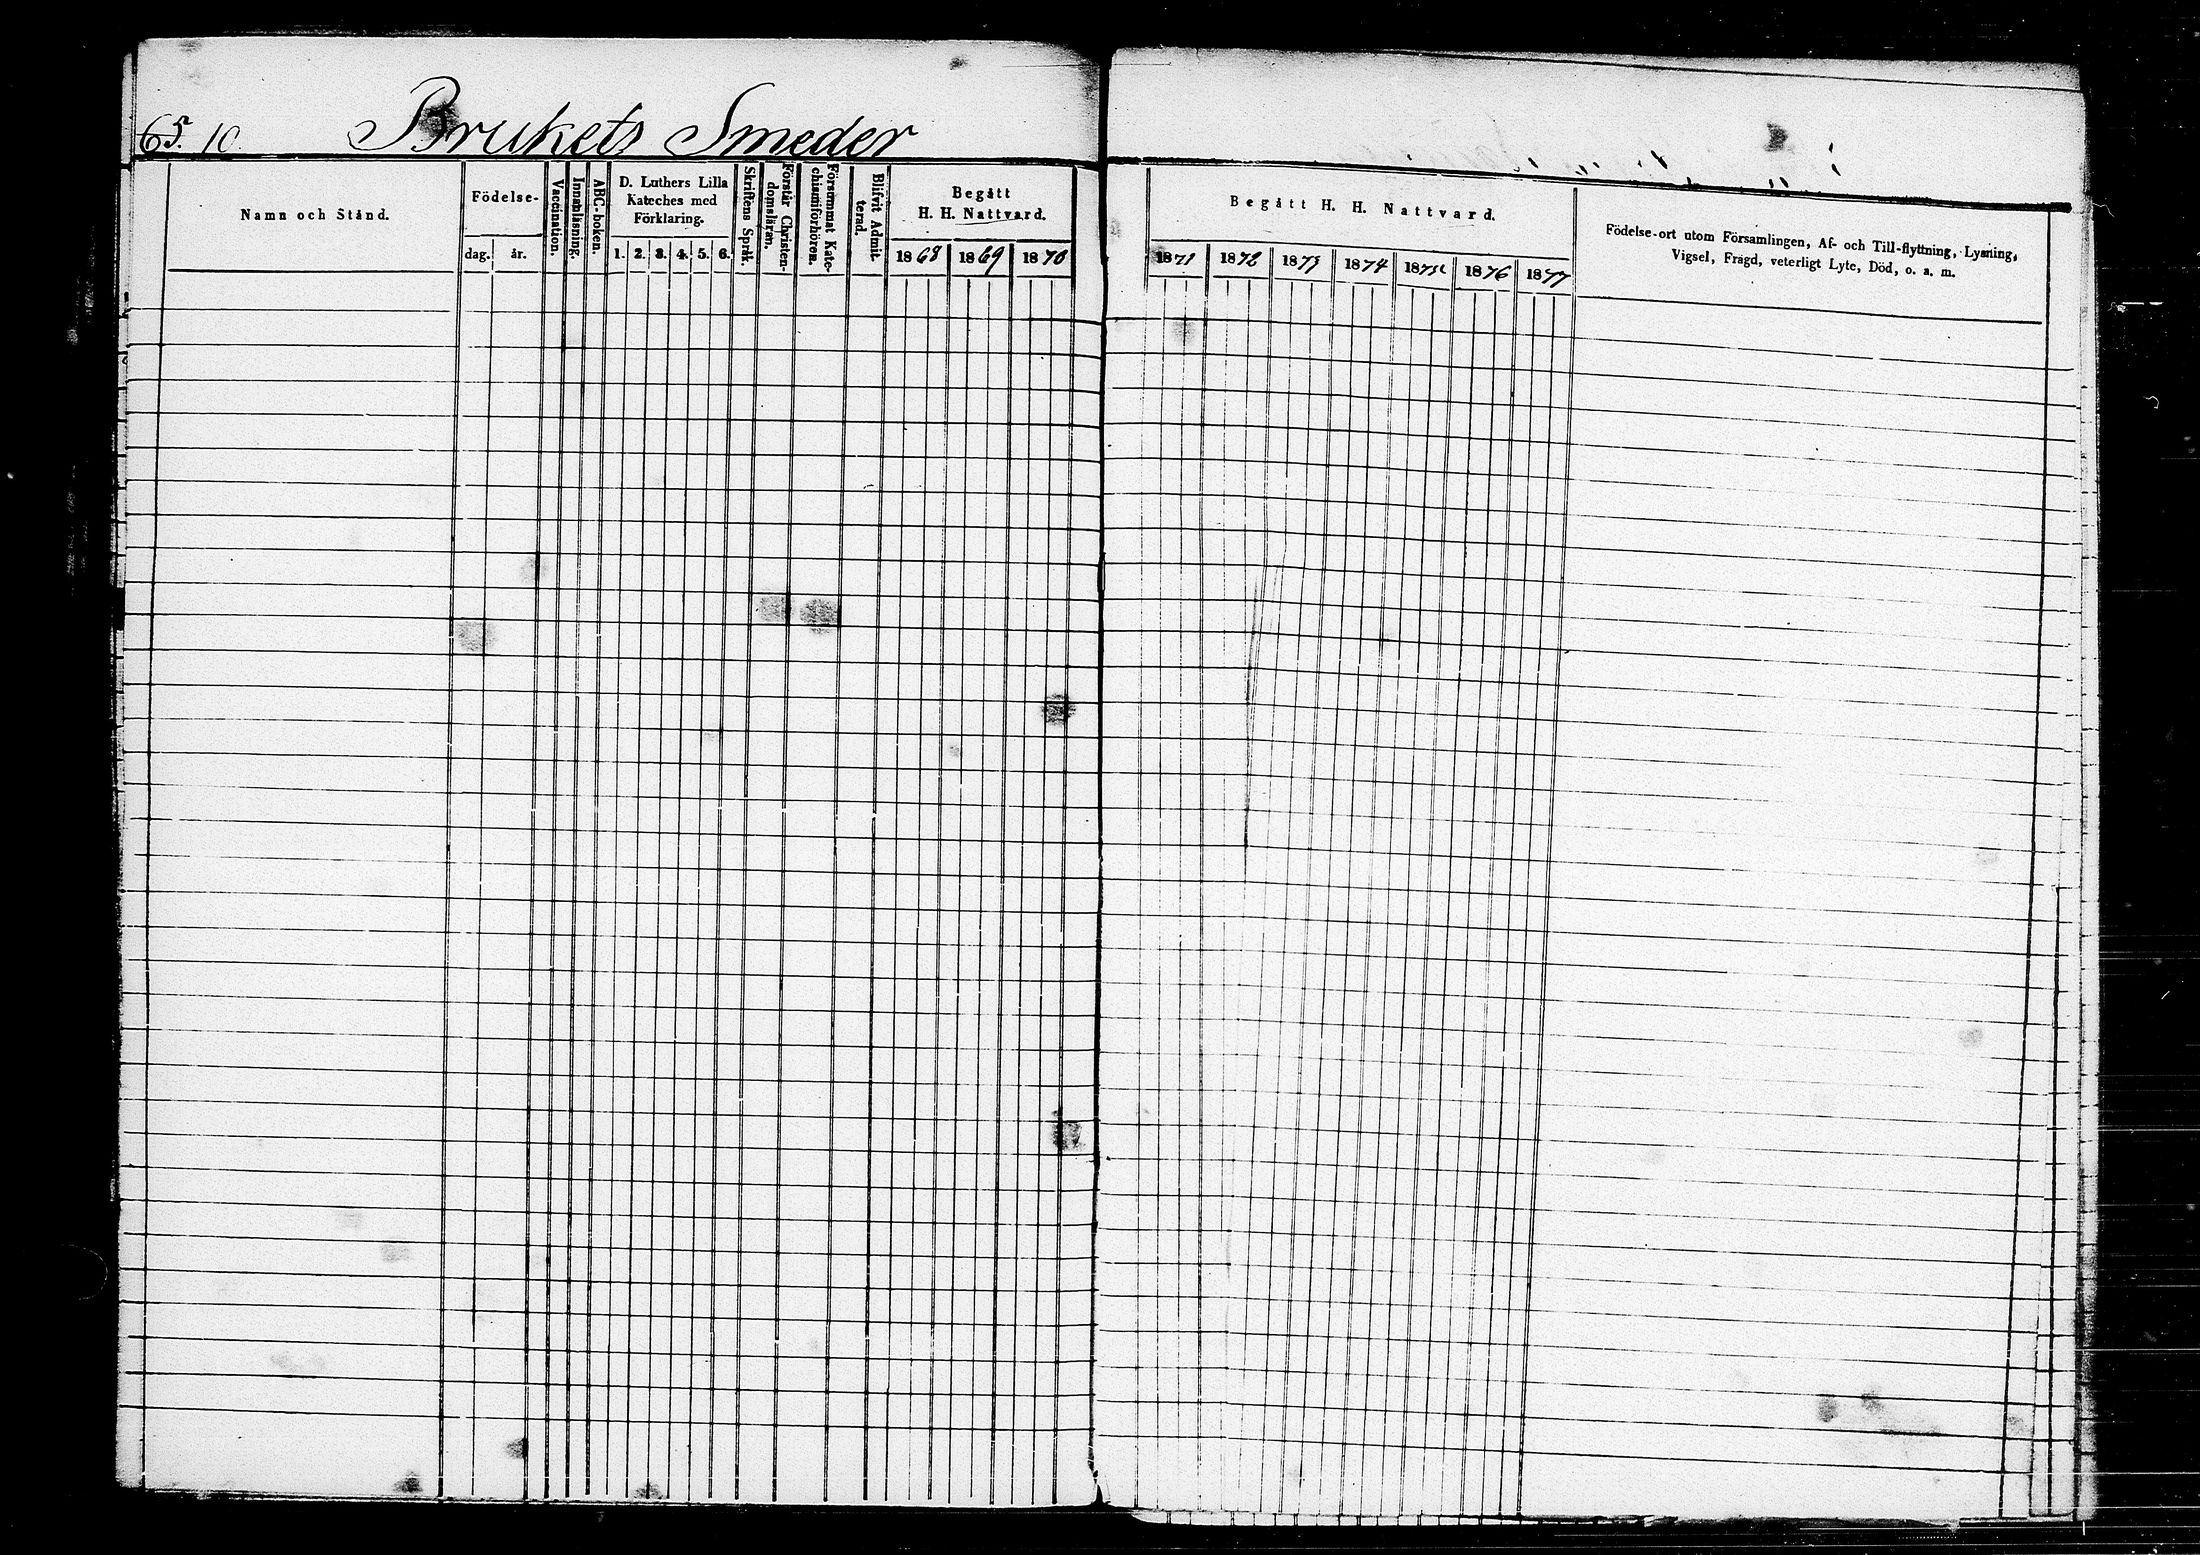 65. 10. Brukets Smeder
Namn och Stånd.
Födelse-
dag. år.
Vaccination.
Innanläsning.
ABC-boken.
D. Luthers Lilla
Kateches med
Förklaring.
1. 2. 3. 4. 5. 6.
Skriftens Språk.
Förstår Christen-
domsläran.
Försummat Kate-
chismiförhören.
Blifvit Admit-
terad.
Begått
H. H. Nattvard.
1868 1869 1870
Begått H. H. Nattvard.
1871 1872 1873 1874 1875 1876 1877
Födelse-ort utom Församlingen, Af- och Till-flyttning, Lysning,
Vigsel, Frägd, veterligt Lyte, Död, o. s. m.